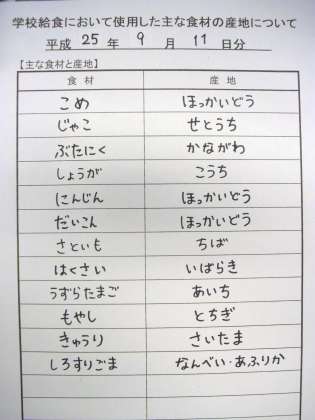 学校給食において使用した主な食材の産地について
平成 25 年 9 月 11 日分
【主な食材と産地】
食材 産地
こめ ほっかいどう
じゃこ せとうち
ぶたにく かながわ
しょうが こうち
にんじん ほっかいどう
だいこん ほっかいどう
さといも ちば
はくさい いばらき
うずらたまご あいち
もやし とちぎ
きゅうり さいたま
しろすりごま なんべい・あふりか